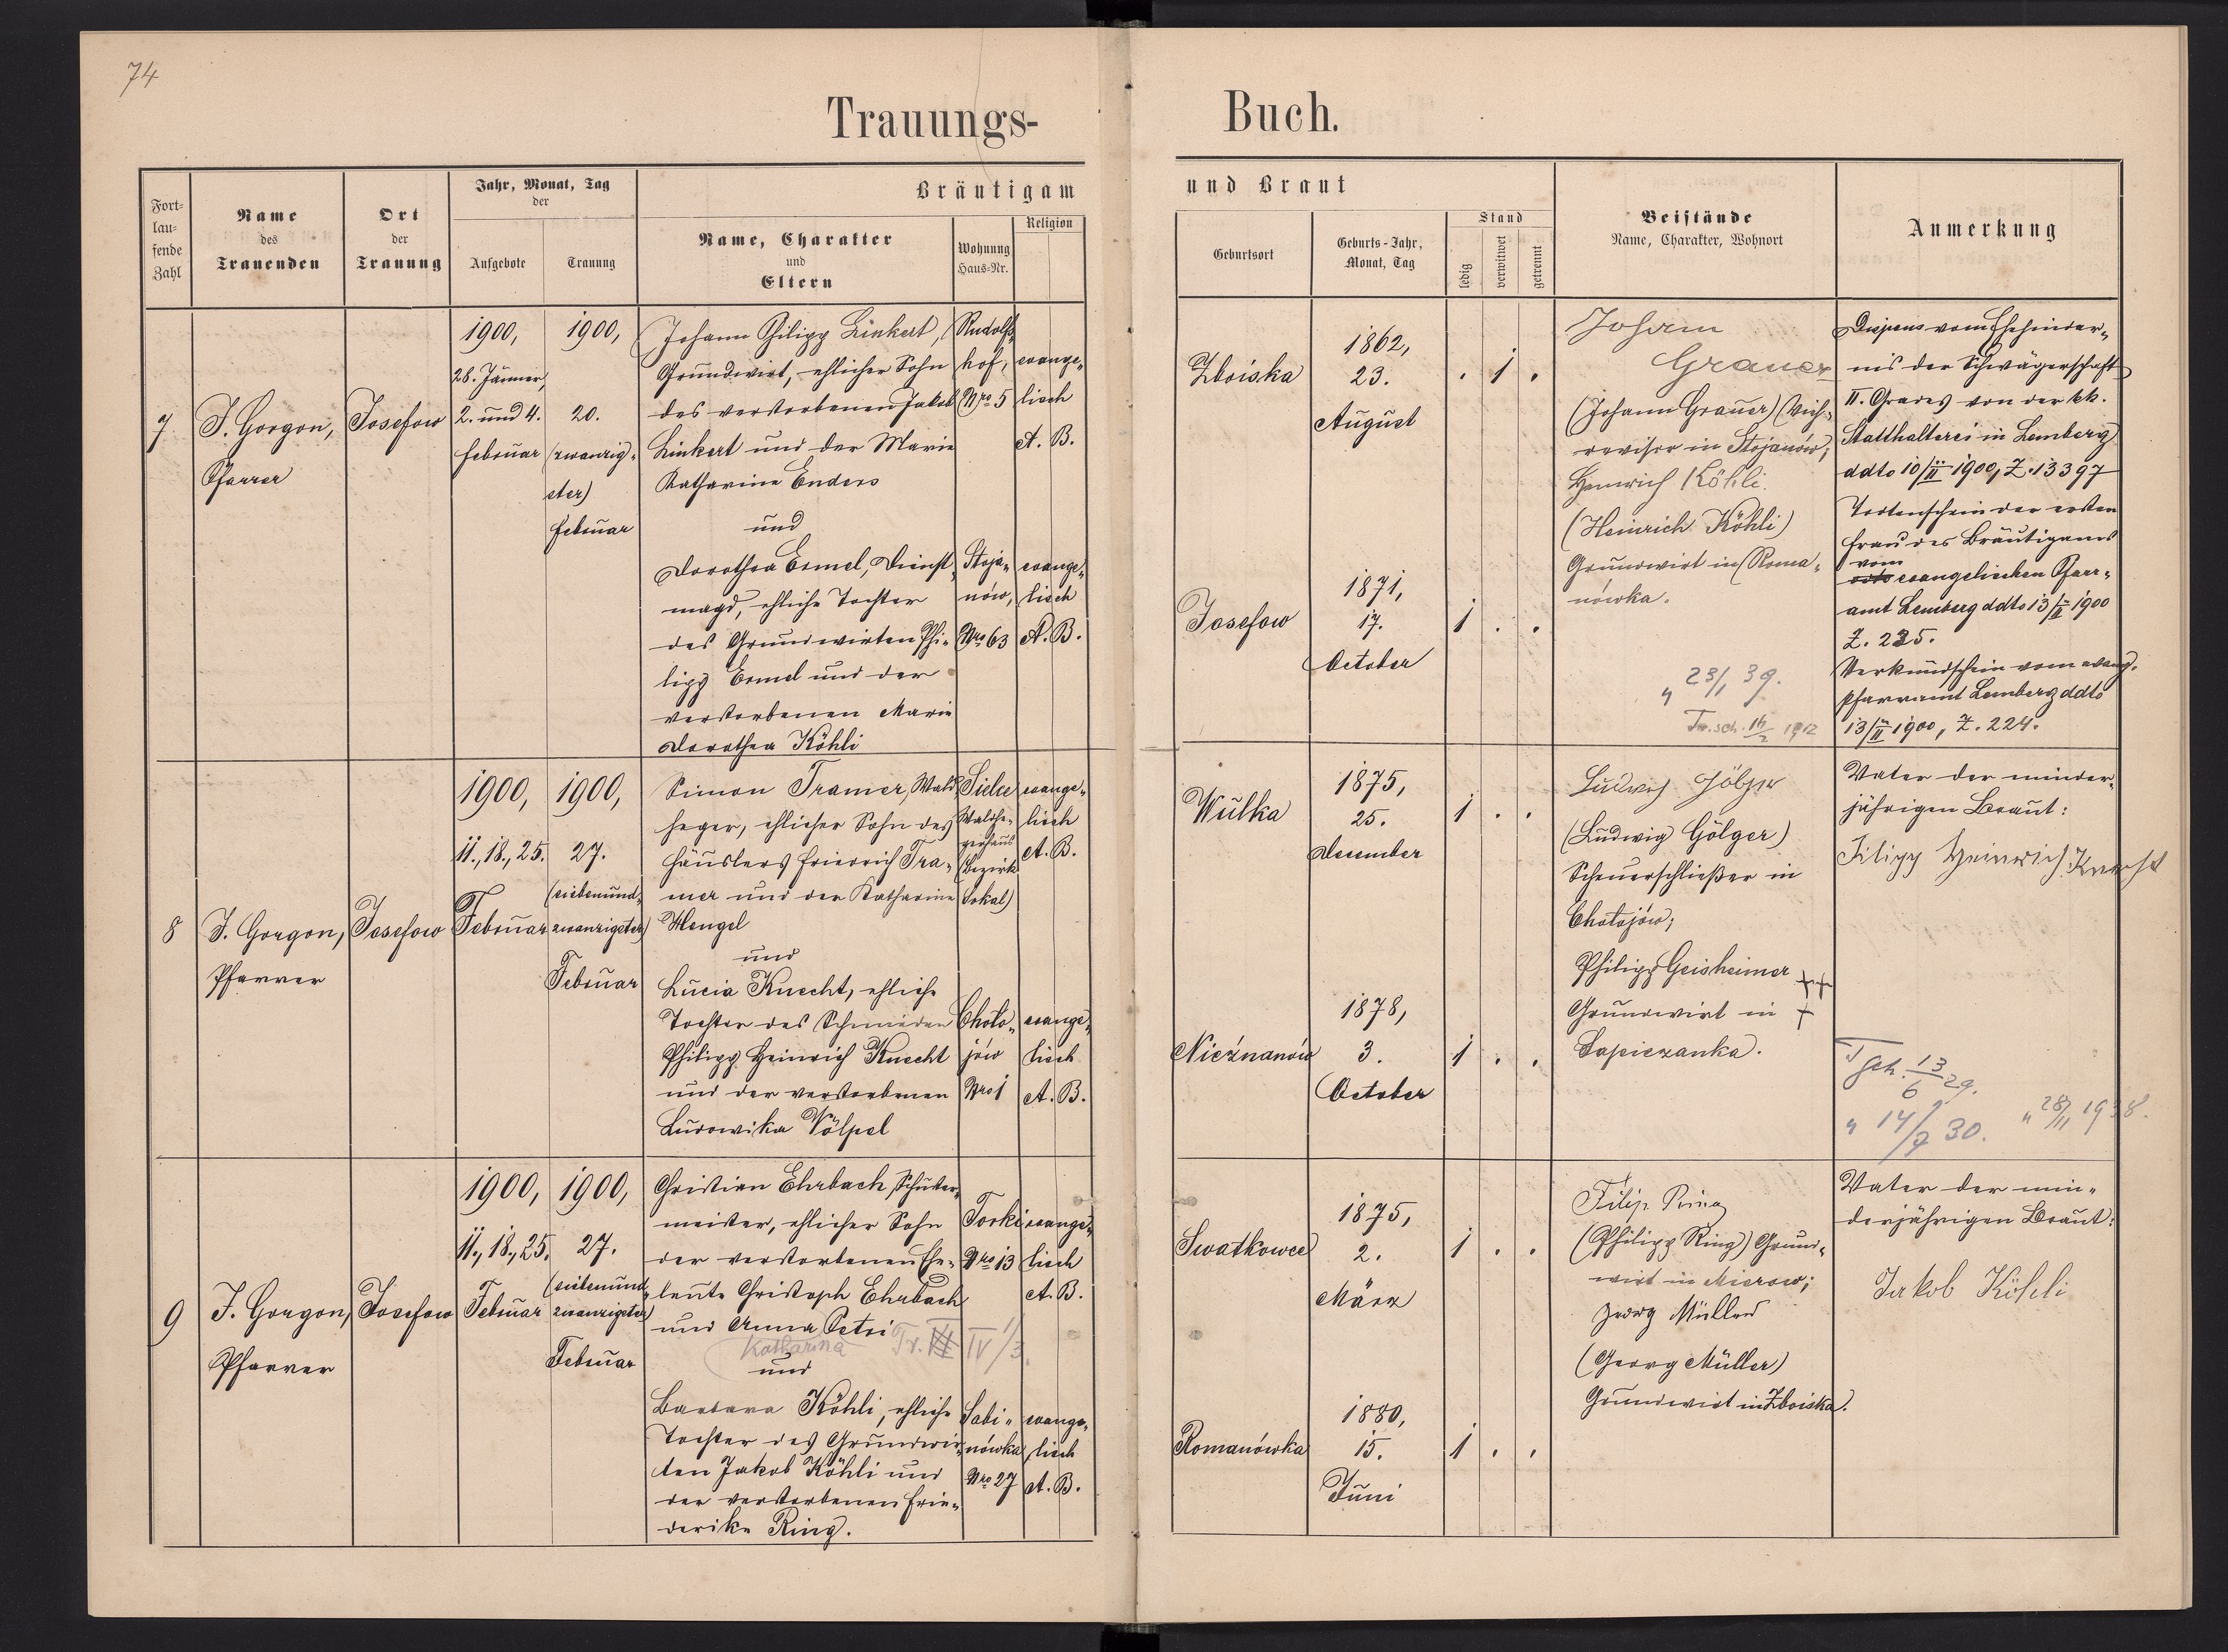 74
Trauungs-
Buch.
Fort-
lau-
fende
Zahl
Name
des
Trauenden
Ort
der
Trauung
Jahr, Monat, Tag
der
Aufgebote
Trauung
Bräutigam
Name, Charakter
und
Eltern
Wohnung
Haus-Nr.
Religion
und Braut
Geburtsort
Geburts-Jahr,
Monat, Tag
Stand
ledig
verwitwet
getrennt
Beistände
Name, Charakter, Wohnort
Anmerkung
7
J. Gorgon,
Pfarrer
Josefow
1900,
28. Jänner,
2. und 4.
Februar
1900,
20.
(zwanzig-
ster)
Februar
Johann Philipp Linkert,
Grundwirt, ehlicher Sohn
des verstorbenen Jakob
Linkert und der Marie
Katharina Enders
und
Dorothea Ermel, Dienst-
magd, ehliche Tochter
des Grundwirten Phi-
lipp Ermel und der
verstorbenen Marie
Dorothea Köhli
Rudolfs-
hof,
Nro 5
Stoja-
nów,
Nro 63
evange-
lisch
A. B.
evange-
lisch
A. B.
Zboiska
1862,
23.
August
. 1 .
Josefow
1871,
17.
October
1 . .
Johann
Grauer
(Johann Grauer) Vieh-
revisor in Stojanów;
Heinrich Köhli.
(Heinrich Köhli)
Grundwirt in Roma-
nówka.
" 23/1 39.
Tr. sch. 16/2 1912
Dispens vom Ehehinder-
nis der Schwägerschaft
II. Grades von der kk.
Statthalterei in Lemberg
ddto 10/II 1900, Z. 13397
Todtenschein der ersten
Frau des Bräutigams
vom
evangelischen Pfarr-
amt Lemberg ddto 13/II 1900
Z. 225.
Verkündschein vom evang.
Pfarramt Lemberg ddto
13/II 1900, Z. 224.
8
J. Gorgon,
Pfarrer
Josefow
1900,
11., 18., 25.
Februar
1900,
27.
(siebenund-
zwanzigster)
Februar
Simon Tramer, Wald-
heger, ehlicher Sohn des
Häuslers Friedrich Tra-
mer und der Katharina
Mengel
und
Lucia Knecht, ehliche
Tochter des Schmieden
Philipp Heinrich Knecht
und der verstorbenen
Ludowika Völpel
Sielec
Waldhe-
gerhaus
(Bezirk
Sokal)
Choto-
jów
Nro 1
evange-
lisch
A. B.
evange-
lisch
A. B.
Wulka
1875,
25.
December
1 . .
Nieznanów
1878,
3.
October
1 . .
Ludwig Gölger
(Ludwig Gölger)
Scheuerschließer in
Chotojów;
Philipp Geisheimer +++
Grundwirt in +
Sapiezanka.
Vater der minder-
jährigen Braut:
Filipp Heinrich Knecht
T sch. 13/6 29.
" 14/7 30. " 28/11 1938.
9
J. Gorgon,
Pfarrer
Josefow
1900,
11., 18., 25.
Februar
1900,
27.
(siebenund-
zwanzigster)
Februar
Christian Ehrbach, Schuster-
meister, ehlicher Sohn
der verstorbenen Ehe-
leute Christoph Ehrbach
und Anna Petri
Katharina Tr. IV/3.
und
Barbara Köhli, ehliche
Tochter des Grundwir-
ten Jakob Köhli und
der verstorbenen Frie-
derike Ring.
Torki
Nro 13
Sabi-
nówka
Nro 27
evange-
lisch
A. B.
evange-
lisch
A. B.
Swatkowce
1875,
2.
März
1 . .
Romanówka
1880,
15.
Juni
1 . .
Filip Ring
(Philipp Ring) Grund-
wirt in Mierow;
Georg Müller
(Georg Müller)
Grundwirt in Zboiska.
Vater der min-
derjährigen Braut:
Jakob Köhli